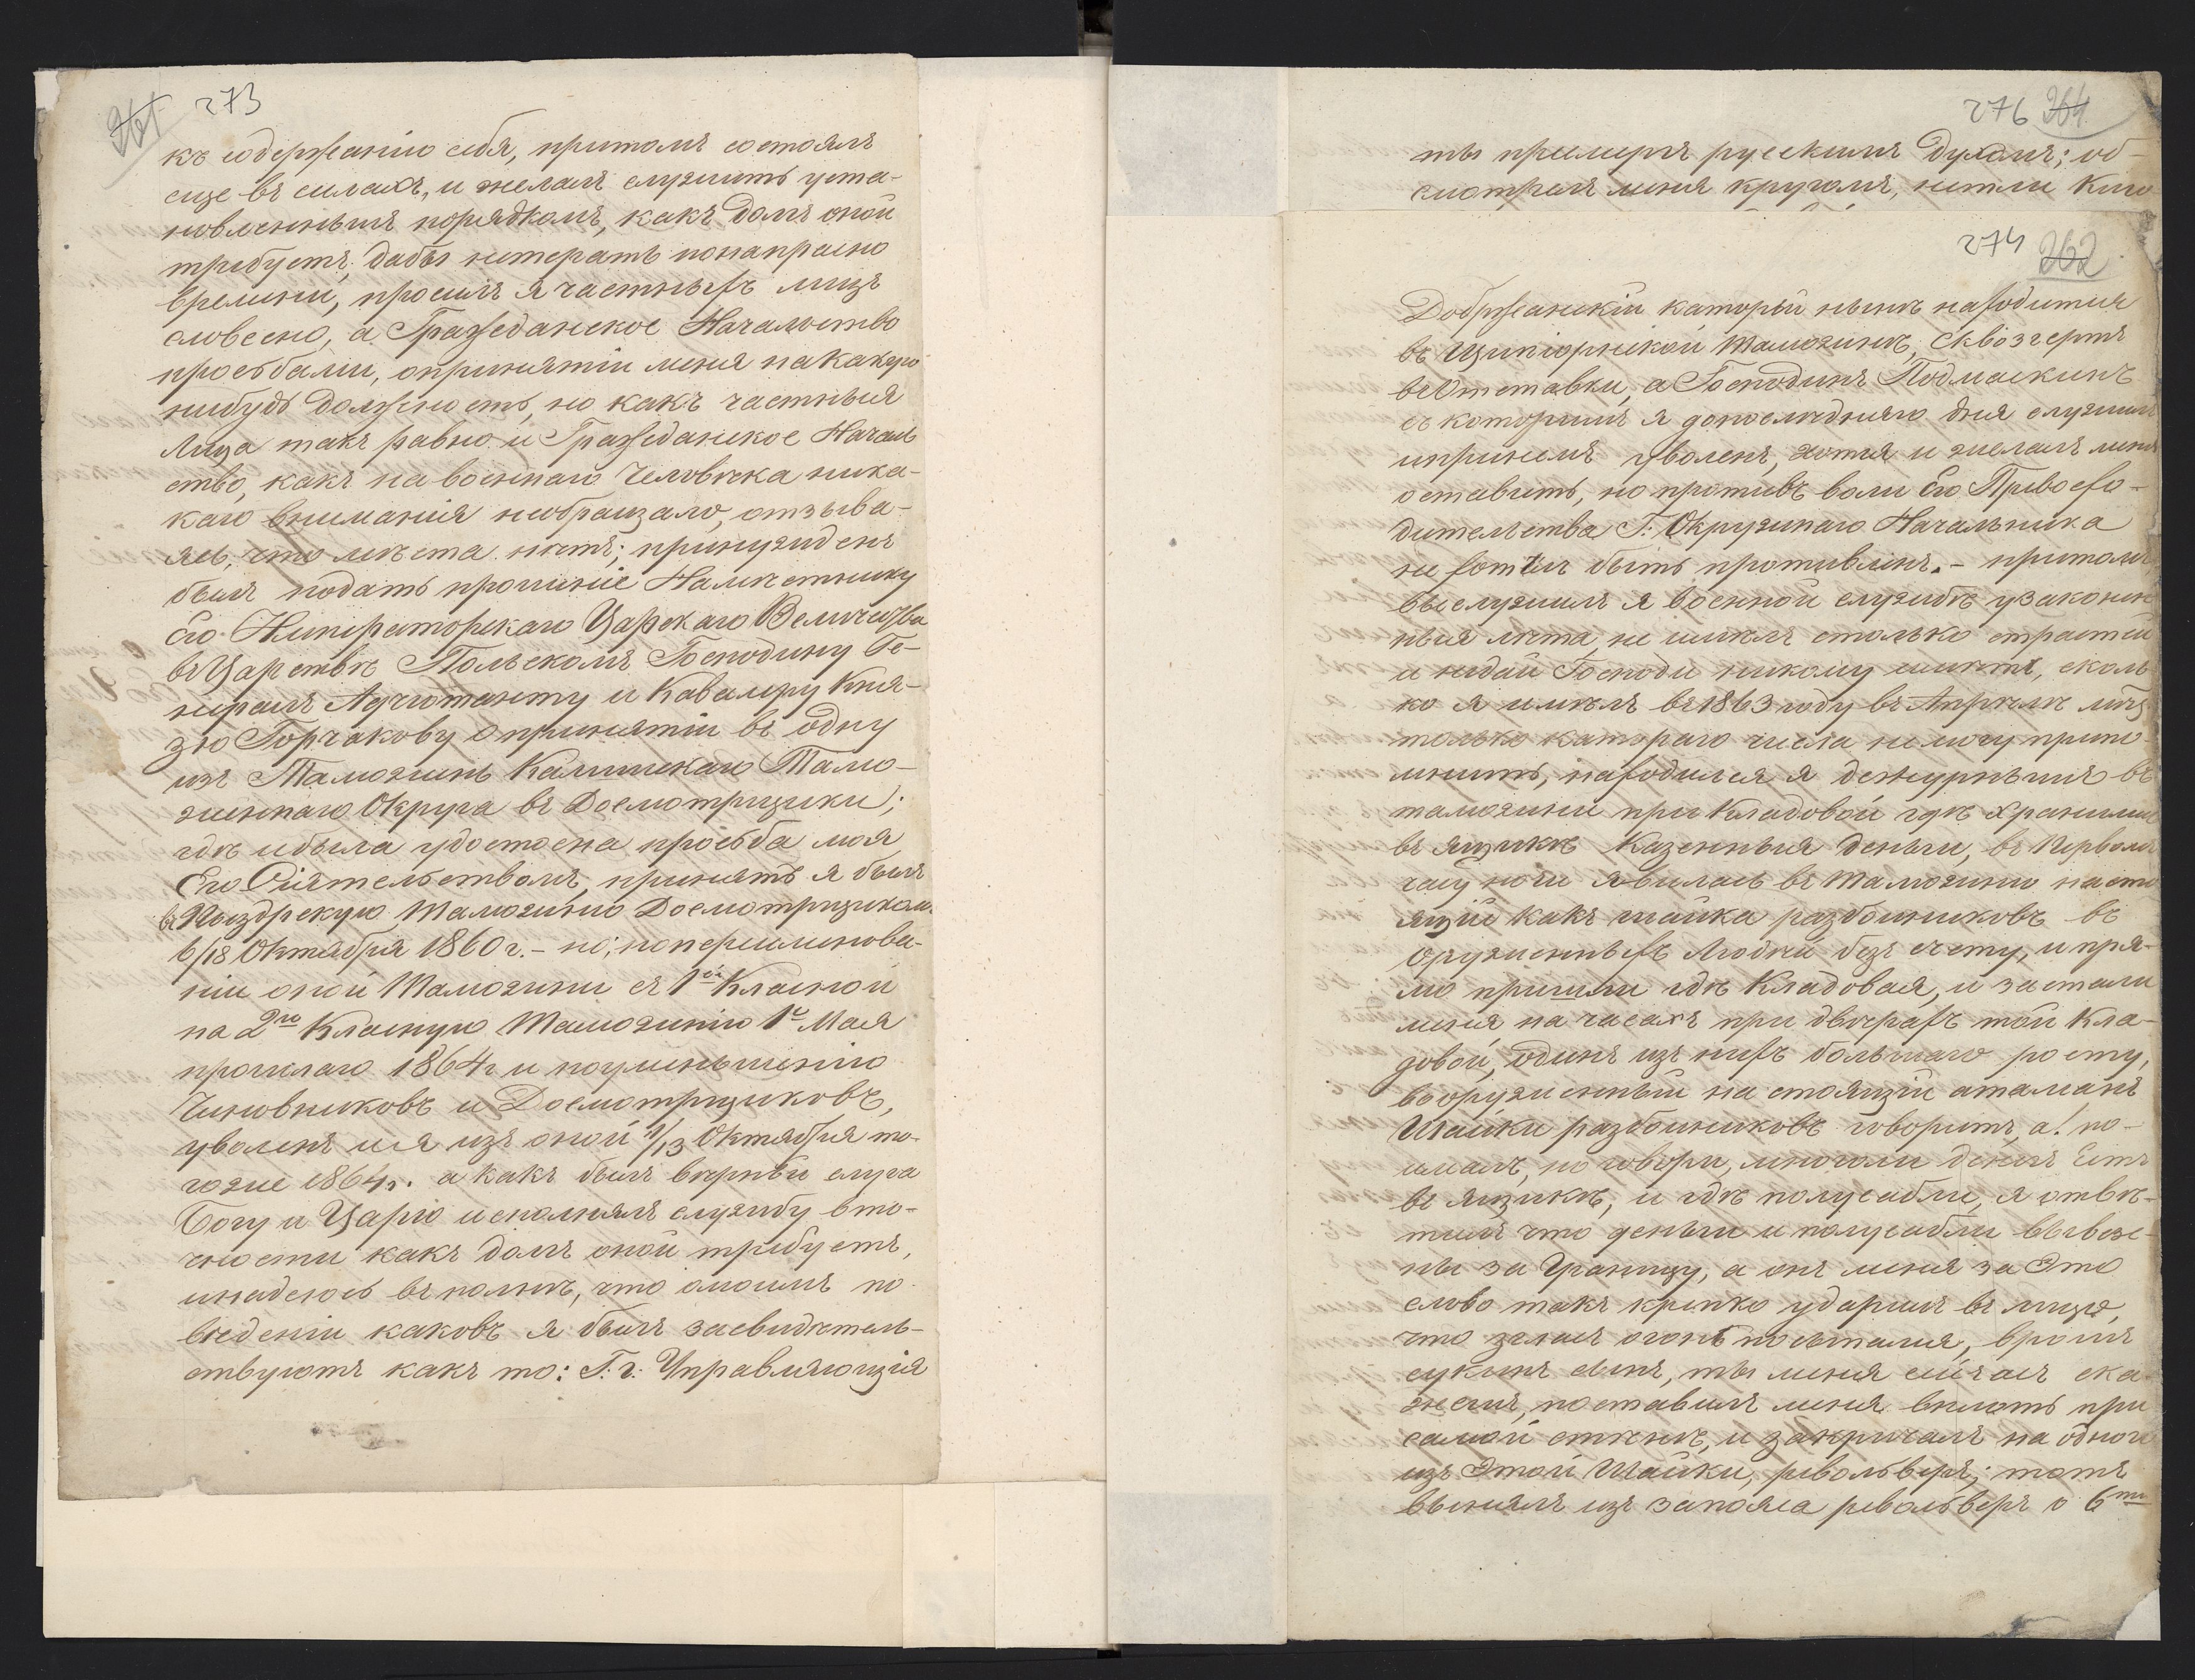 261 273
къ содержанію себя, притомъ состоялъ
еще въ силахъ, и желалъ служить уста-
новленнымъ порядкомъ, какъ долгъ оной
требуетъ, дабы нетерать понапрасно
времини, просилъ я частныхъ лицъ
словесно, а Гражданское Начальство
прозьбами, опринятіи меня на какую
нибудь должность, но какъ частныя
Лица такъ равно и Гражданское Началь
ство, какъ на военнаго человѣка ника-
каго вниманія необращало, отзыва-
ясь, что мѣста нѣтъ; принужденъ
былъ подать прошеніе Намѣстнику
Его Императорскаго Царскаго Величества
въ Царствѣ Польскомъ Господину Ге-
нералъ Адъютанту и Кавалеру Кня-
зю Горчакову о принятіи въ одну
изъ Таможень Калишскаго Тамо-
женнаго Округа въ Досмотрщики;
гдѣ ибыла удостоена прозьба моя
Его Сіятельствомъ, принятъ я былъ
въ Пыздрскую Таможню Досмотрщикомъ
6/18 Октября 1860 г. - но; попереименова-
ніи оной Таможни съ 1ой Класной
на 2ю Класную Таможню 1го Мая
прошлаго 1864 г и поуменьшенію
Чиновниковъ и Досмотрщиковъ,
уволенъ и я изъ оной 1/13 Октября то-
гоже 1864 г. а какъ былъ вѣрный слуга
Богу и Царю исполнялъ службу вто-
чности какъ долгъ оной требуетъ,
инадеюсь въ полнѣ, что омоимъ по-
веденіи каковъ я былъ засвидѣтель-
ствуютъ какъ то: Г. г. Управляющія
276 264
ты примеръ рускимъ духомъ; об-
смотрелъ меня кругомъ, нетли кого
274 262
Добржанскій каторый нынѣ находится
въ Щипіорнской таможнѣ, Сквозгертъ
въ Отставки, а Господинъ Подмаскинъ
съ которымъ я допослѣдняго дня служилъ
ипринемъ уволенъ, хотя и желалъ меня
оставить, но противъ воли Его Превосхо-
дительства Г. Окружнаго Начальника
не хотелъ быть противленъ. - притомъ,
выслужилъ я военной службѣ узаконен
ныя лѣта, не имѣлъ столько страстей
и недай Господи никому имѣть, сколь
ко я имѣлъ въ 1863 году въ Апрѣлѣ мѣсц
только катораго числа немогу припо-
мнить, находился я дежурнымъ въ
таможни при Кладовой гдѣ хранились
въ ящикѣ казенныя деньги, въ Первомъ
часу ночи явилась въ таможню насто
ящіе какъ шайка разбойниковъ въ
оружіенныхъ Людей безъ счету, и пря-
мо пришли гдѣ Кладовая, и застали
меня на часахъ при дверяхъ той Кла-
довой, одинъ изъ нихъ большаго росту,
вооруженный на стоящіи атаманъ
Шайки разбойниковъ говоритъ, а! по-
ималъ, по говори, многоли денегъ Есть
въ ящикѣ, и гдѣ полусабли, я отвѣ-
тилъ что деньги и полусабли вывезе-
ны за границу, а онъ меня за Это
слово такъ крепко ударилъ въ лице,
что згласъ огонь посыпался, врошъ
сукинъ сынъ, ты меня сейчасъ ска-
жешъ, поставилъ меня вплоть при
самой стѣнѣ, и закричалъ на одного
изъ Этой Шайки, револьверъ; тотъ
вынялъ изъ запояса револьверъ о 6ти